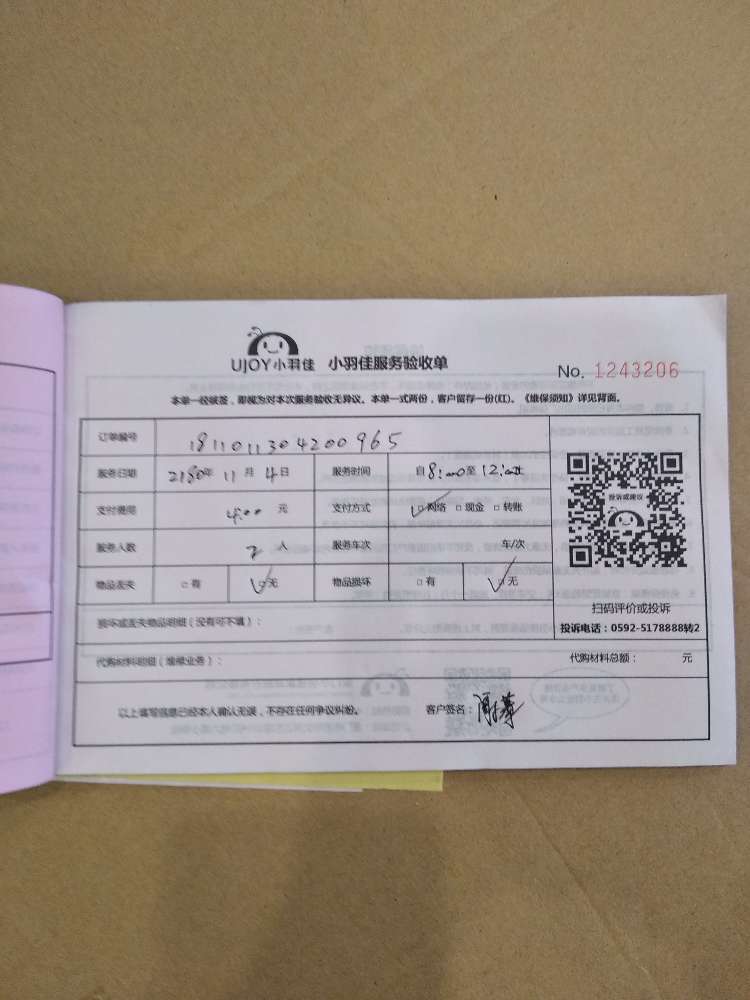 UJOY小羽佳 小羽佳服务验收单
No. 1243206
本单一经签签，即视为对本次服务验收无异议。本单一式两份，客户留存一份(红)。《维保须知》详见背面。
订单编号 1811011304200965
服务日期 2180年 11月 4日 服务时间 自8:00至12:00止
支付费用 400 元 支付方式 ☑网络 □现金 □转账
服务人数 2 人 服务车次 车/次
物品丢失 □有 ☑无 物品损坏 □有 ☑无
投诉或建议
扫码评价或投诉
投诉电话：0592-5178888转2
损坏或丢失物品明细（没有可不填）：
代购材料明细（维修业务）： 代购材料总额： 元
以上填写信息已经本人确认无误，不存在任何争议纠纷。 客户签名：